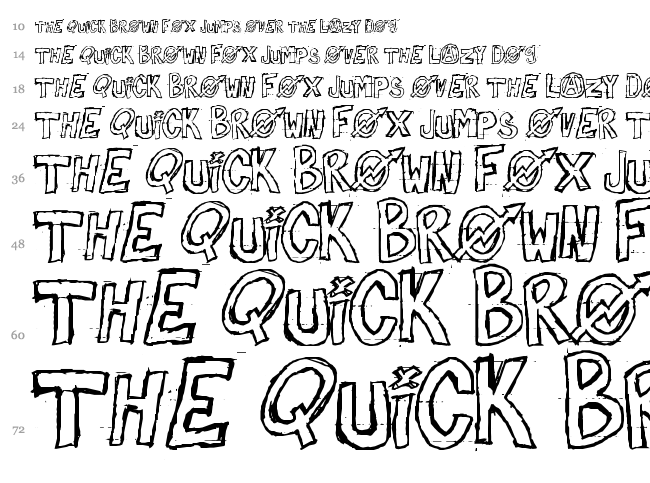 10 THE QUiCK BROWN FOX JUMPS OVER THE LAZY DOG
14 THE QUiCK BROWN FOX JUMPS OVER THE LAZY DOG
18 THE QUiCK BROWN FOX JUMPS OVER THE LAZY DO
24 THE QUiCK BROWN FOX JUMPS OVER T
36 THE QUiCK BROWN FOX JU
48 THE QUiCK BROWN F
60 THE QUiCK BRO
72 THE QUiCK BR